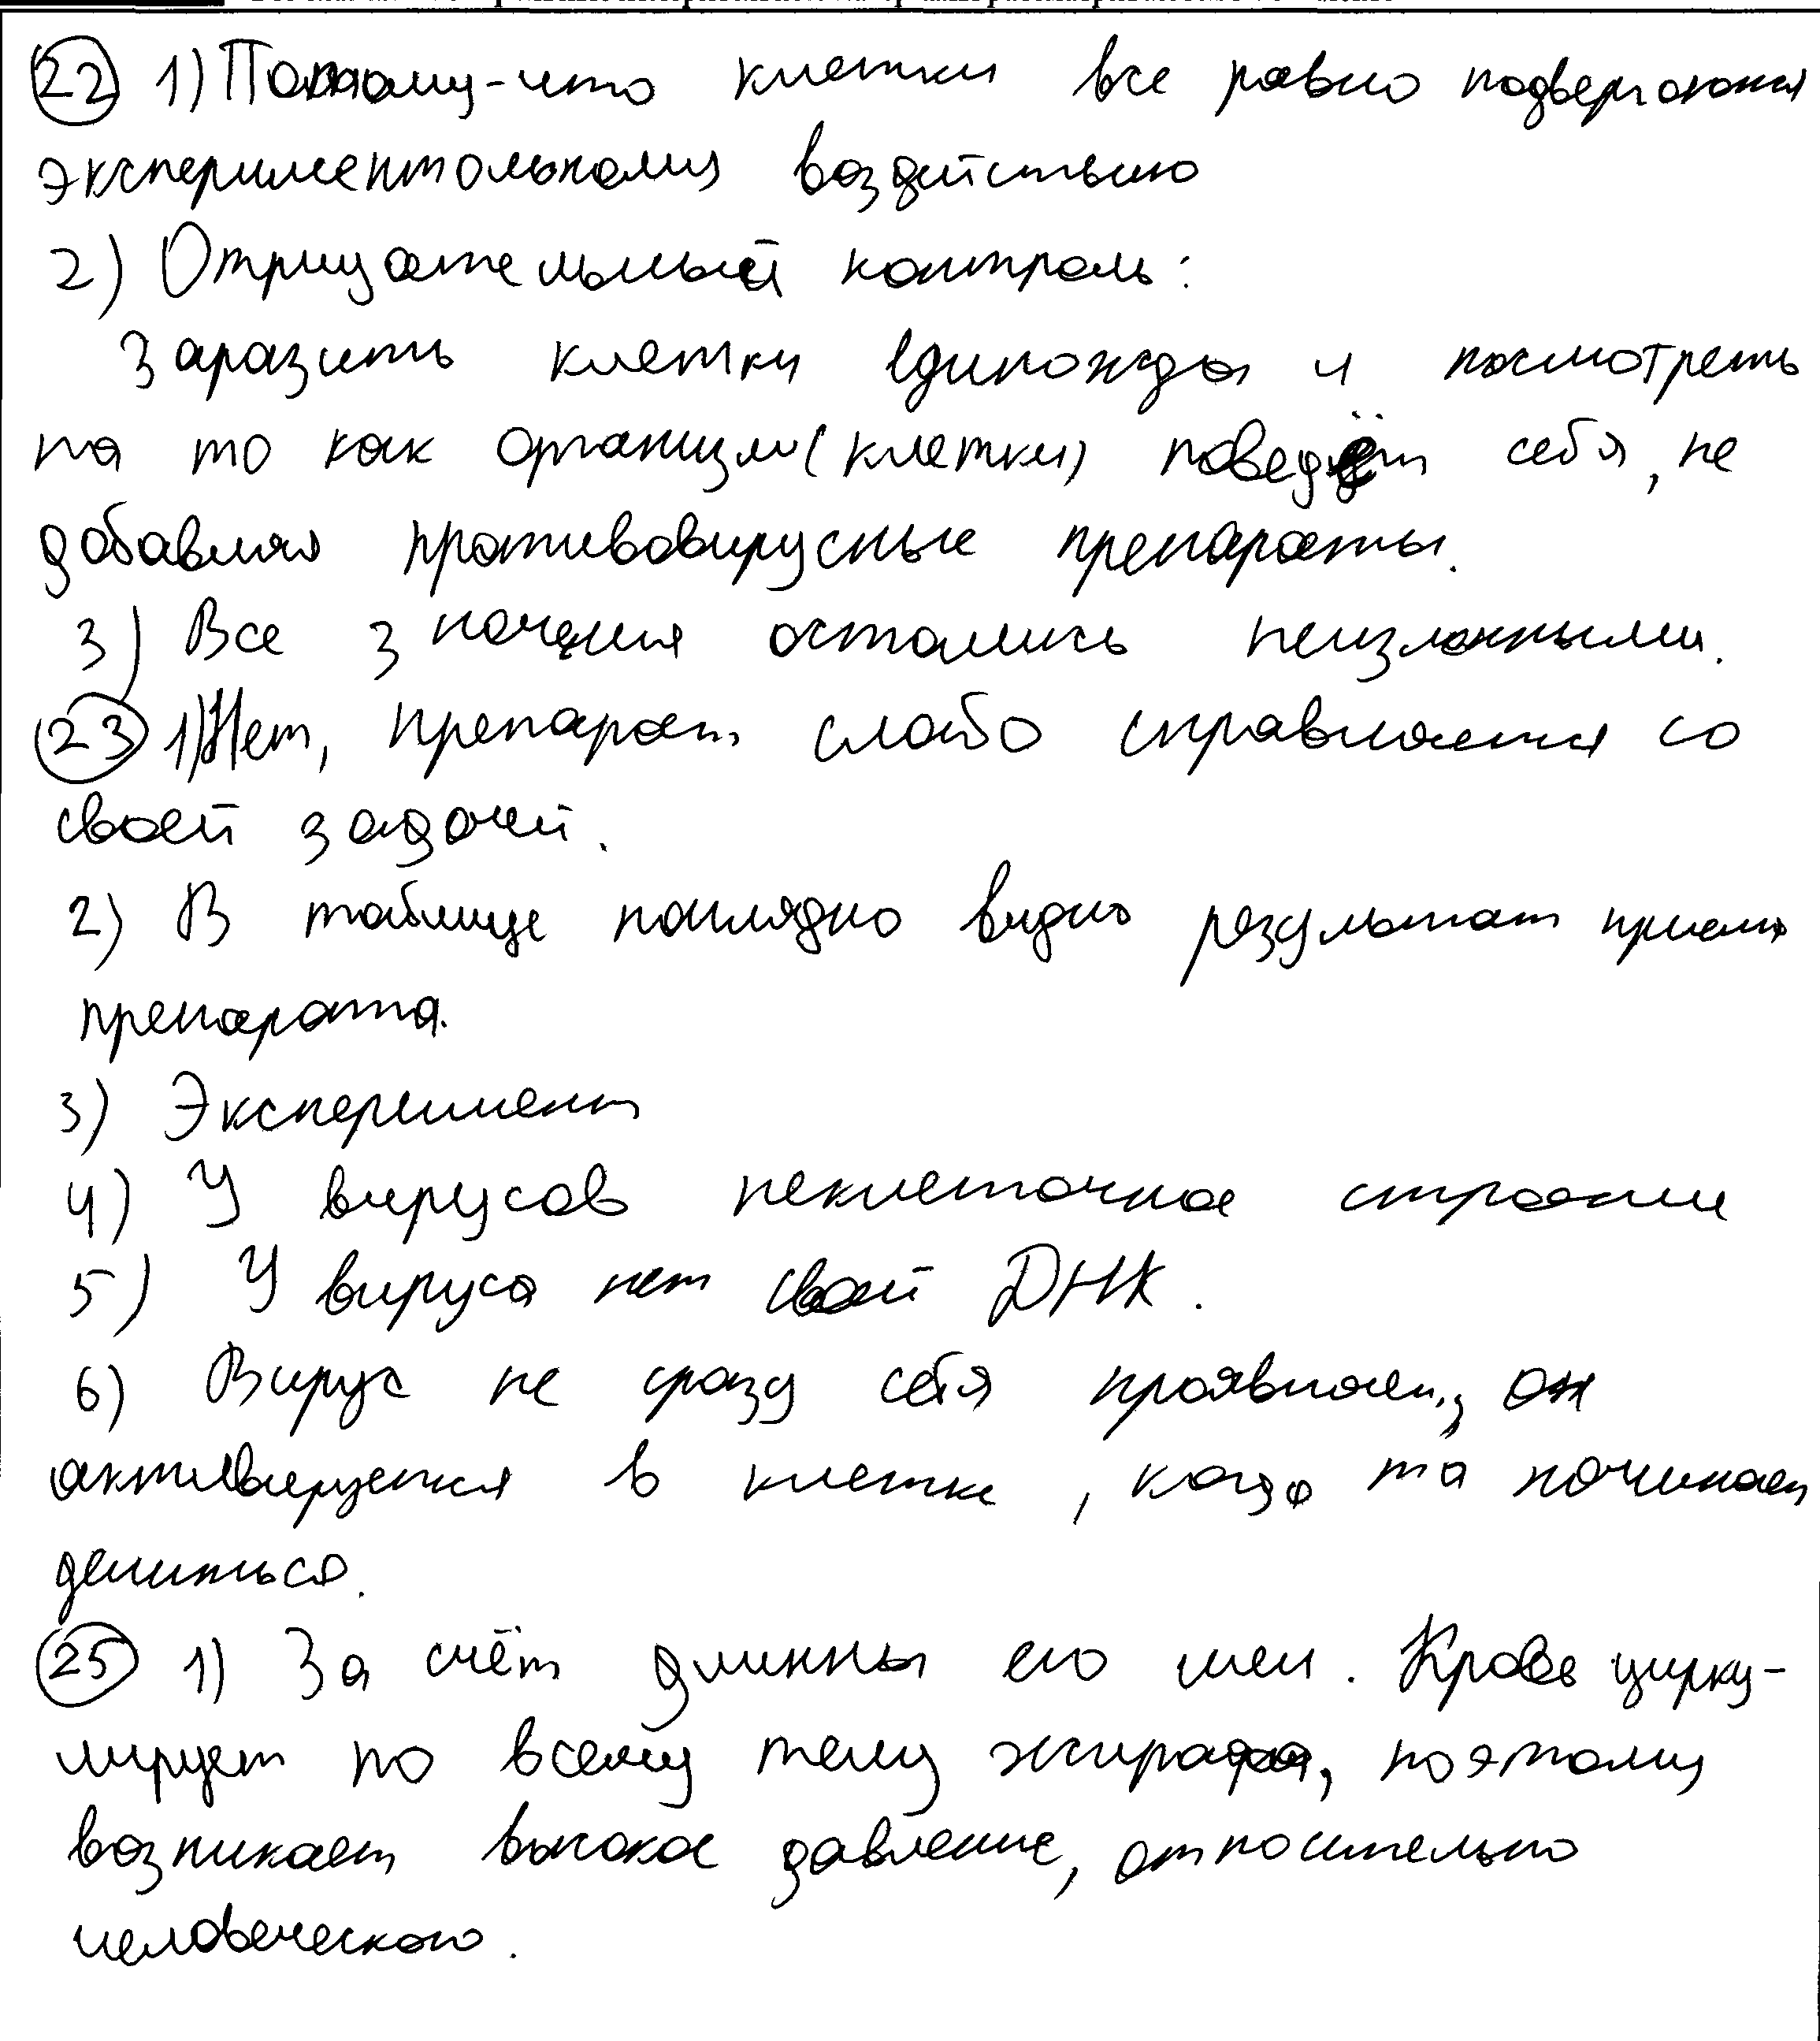 22 1) Потому-что клетки все равно подвергаются
экспериментальному воздействию
2) Отрицательный контроль:
Заразить клетки единожды и посмотреть
на то как организм (клетки) поведёт себя, не
добавляя противовирусные препараты.
3) Все значения остались неизменными.
23 1) Нет, препарат слабо справляется со
своей задачей.
2) В таблице наглядно видно результат приема
препарата.
3) Эксперемент
4) У вирусов неклеточное строение
5) У вируса нет своей ДНК.
6) Вирус не сразу себя проявляет, он
активируется в клетке, когда та начинает
делиться.
25 1) За счёт длинны его шеи. Кровь цирку-
лирует по всему телу жирафа, поэтому
возникает высокое давление, относительно
человеческого.